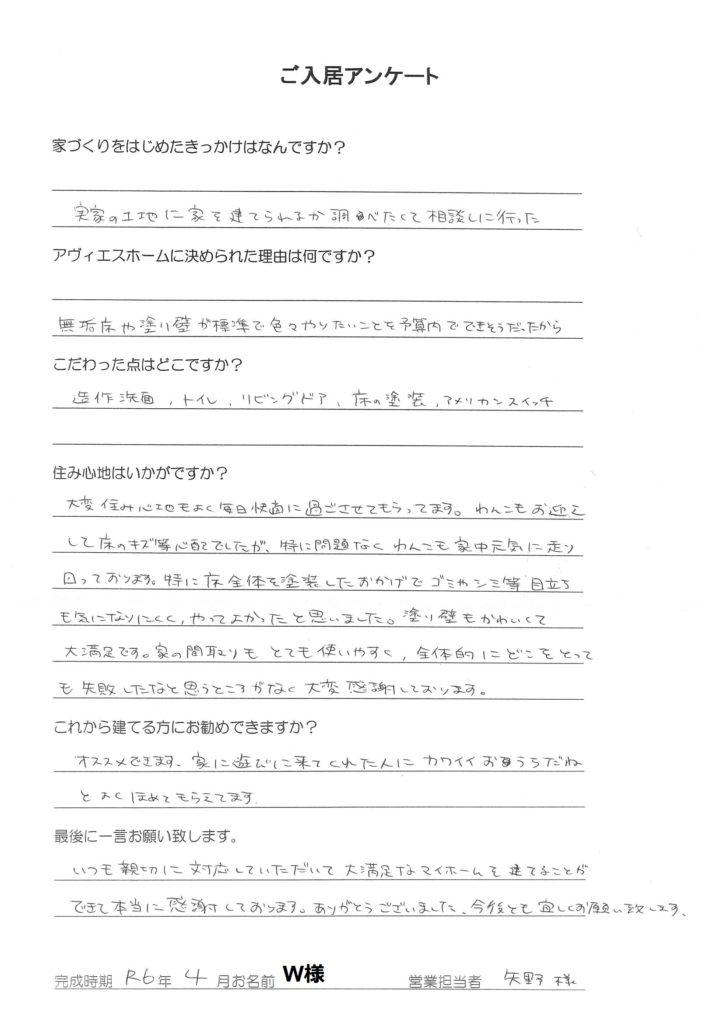 ご入居アンケート
家づくりをはじめたきっかけはなんですか？
実家の土地に家を建てられるか調べたくて相談しに行った
アヴィエスホームに決められた理由は何ですか？
無垢床や塗り壁が標準で色々やりたいことを予算内でできそうだったから
こだわった点はどこですか？
造作洗面、トイレ、リビングドア、床の塗装、アメリカンスイッチ
住み心地はいかがですか？
大変住み心地もよく毎日快適に過ごさせてもらってます。わんこもお迎え
して床のキズ等心配でしたが、特に問題なくわんこも家中元気に走り
回っております。特に床全体を塗装したおかげでゴミやシミ等目立ち
も気になりにくく、やってよかったと思いました。塗り壁もかわいくて
大満足です。家の間取りもとても使いやすく、全体的にどこをとって
も失敗したなと思うところがなく大変感謝しております。
これから建てる方にお勧めできますか？
オススメできます、家に遊びに来てくれた人にカワイイおうちだね
とよくほめてもらえてます
最後に一言お願い致します。
いつも親切に対応していただいて大満足なマイホームを建てることが
できて本当に感謝しております。ありがとうございました、今後とも宜しくお願い致します、
完成時期 R6年 4 月お名前 W様 営業担当者 矢野 様